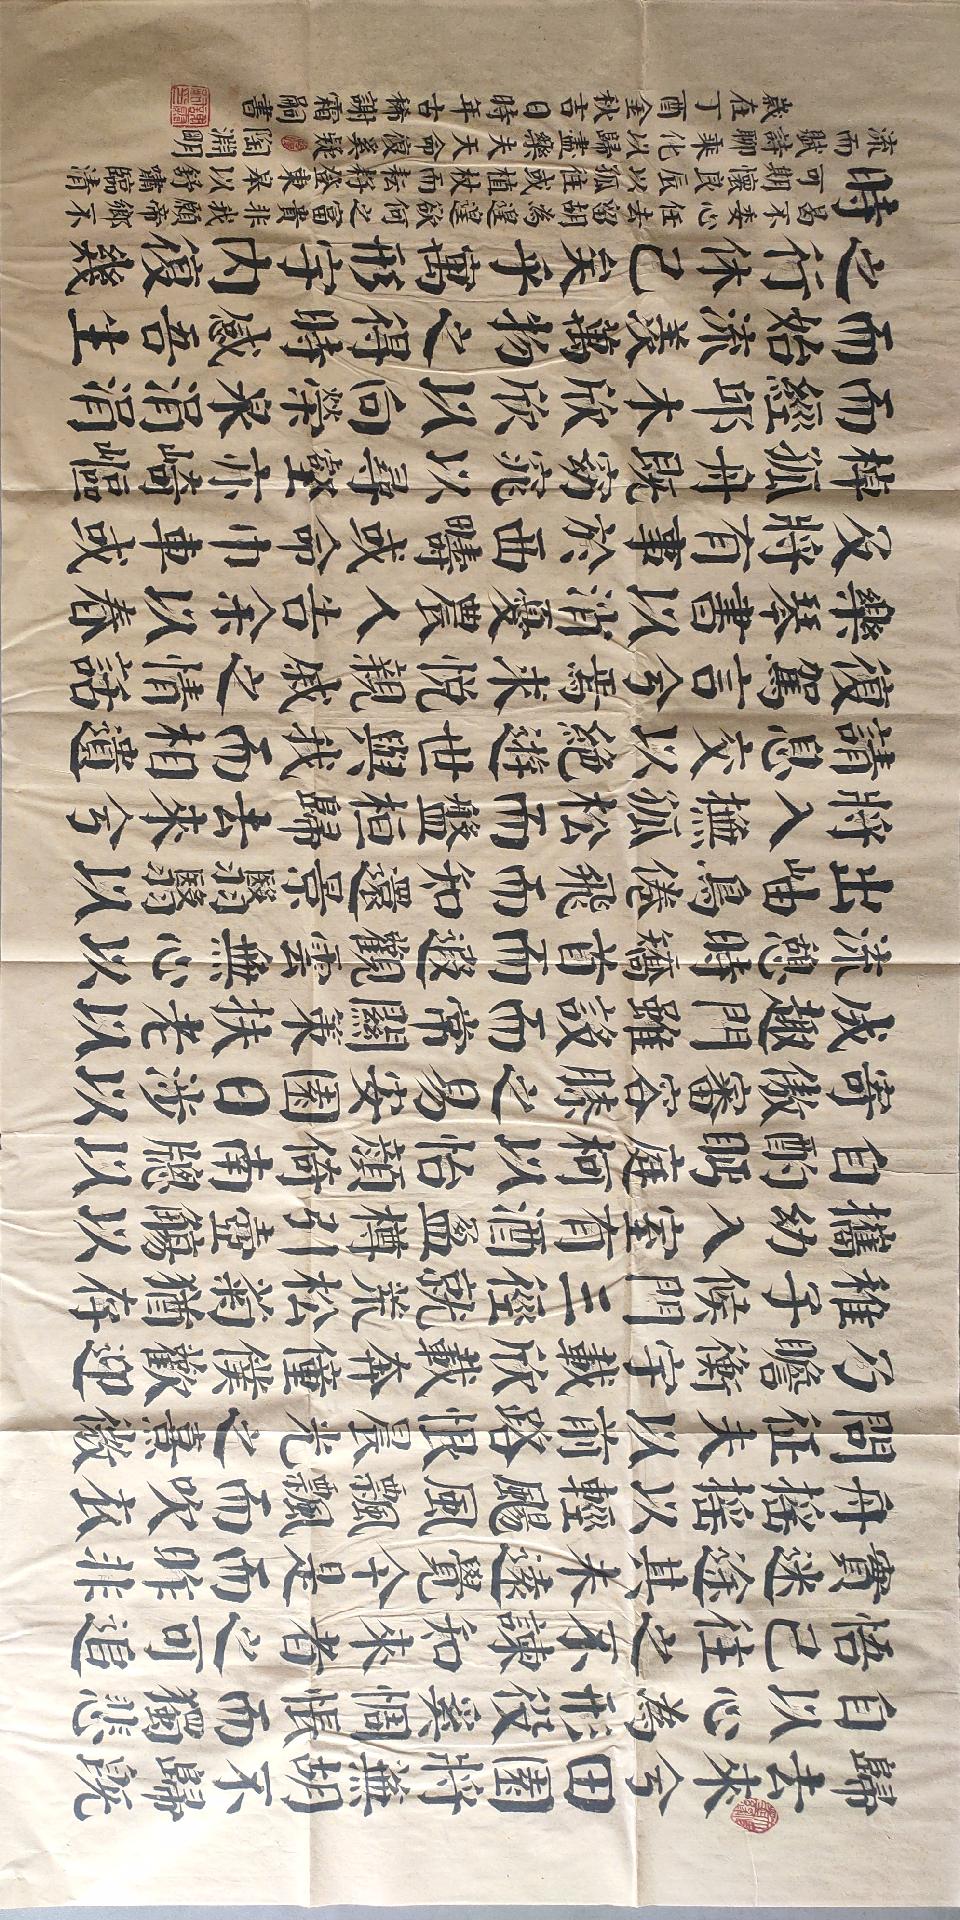 歸去來兮田園將蕪胡不歸既
自以心為形役奚惆悵而獨悲
悟已往之不諫知來者之可追
實迷途其未遠覺今是而昨非
舟摇摇以輕颺風飄飄而吹衣
問征夫以前路恨晨光之熹微
乃瞻衡宇載欣載奔僮僕歡迎
稚子候門三徑就荒松菊猶存
攜幼入室有酒盈樽引壺觴以
自酌眄庭柯以怡顏倚南牕以
寄傲審容膝之易安園日涉以
成趣門雖設而常關策扶老以
流憩時矯首而遐觀雲無心以
出岫鳥倦飛而知還景翳翳以
將入撫孤松而盤桓歸去來兮
請息交以絕遊世與我而相遺
復駕言兮焉求悅親戚之情話
樂琴書以消憂農人告余以春
及將有事於西疇或命巾車或
棹孤舟既窈窕以尋壑亦崎嶇
而經邱木欣欣以向榮泉涓涓
而始流羨萬物之得時感吾生
之行休已矣乎寓形宇內復幾
時
曷不委心任去留胡為遑遑欲何之富貴非我願帝鄉不
可期懷良辰以孤往或植杖而耘耔登東皋以舒嘯臨清
流而賦詩聊乘化以歸盡樂夫天命復奚疑 陶淵明
歲在丁酉金秋吉日時年古稀謝霜嗣書